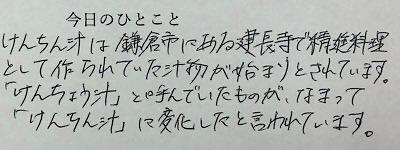 今日のひとこと
けんちん汁は鎌倉市にある建長寺で精進料理
として作られていた汁物が始まりとされています。
「けんちょう汁」と呼んでいたものが、なまって
「けんちん汁」に変化したと言われています。